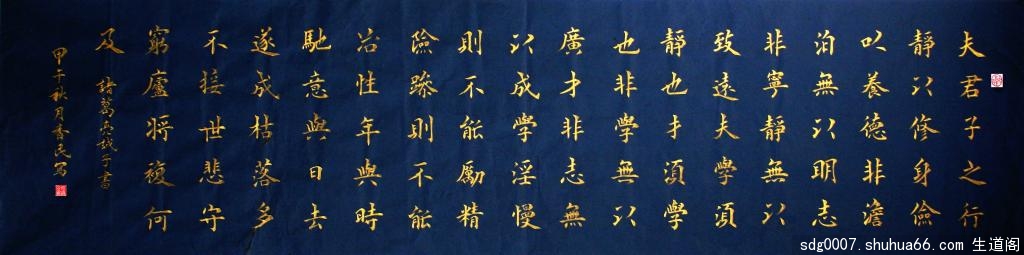 夫君子之行
靜以修身儉
以養德非澹
泊無以明志
非寧靜無以
致遠夫學須
靜也才須學
也非學無以
廣才非志無
以成學淫慢
則不能勵精
險躁則不能
冶性年與時
馳意與日去
遂成枯落多
不接世悲守
窮廬將複何
及
諸葛亮誡子書
甲午秋月秀民寫
sdg0007.shuhua66.com 生道阁